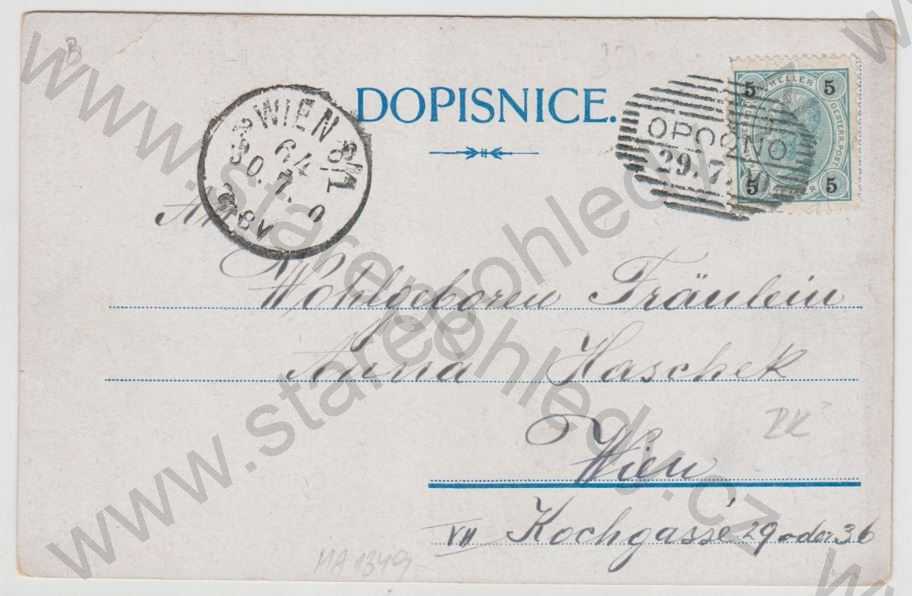 DOPISNICE.
WIEN 8/1
64
30. 7. 0
5 HELLER 5
OPOČNO
29. 7. 0
5 5
An
Wohlgeboren Fräulein
Anna Haschek
Wien
VII Kochgasse 29 oder 36
MA 1349
www.starepohledy.cz
www.starepohledy.cz